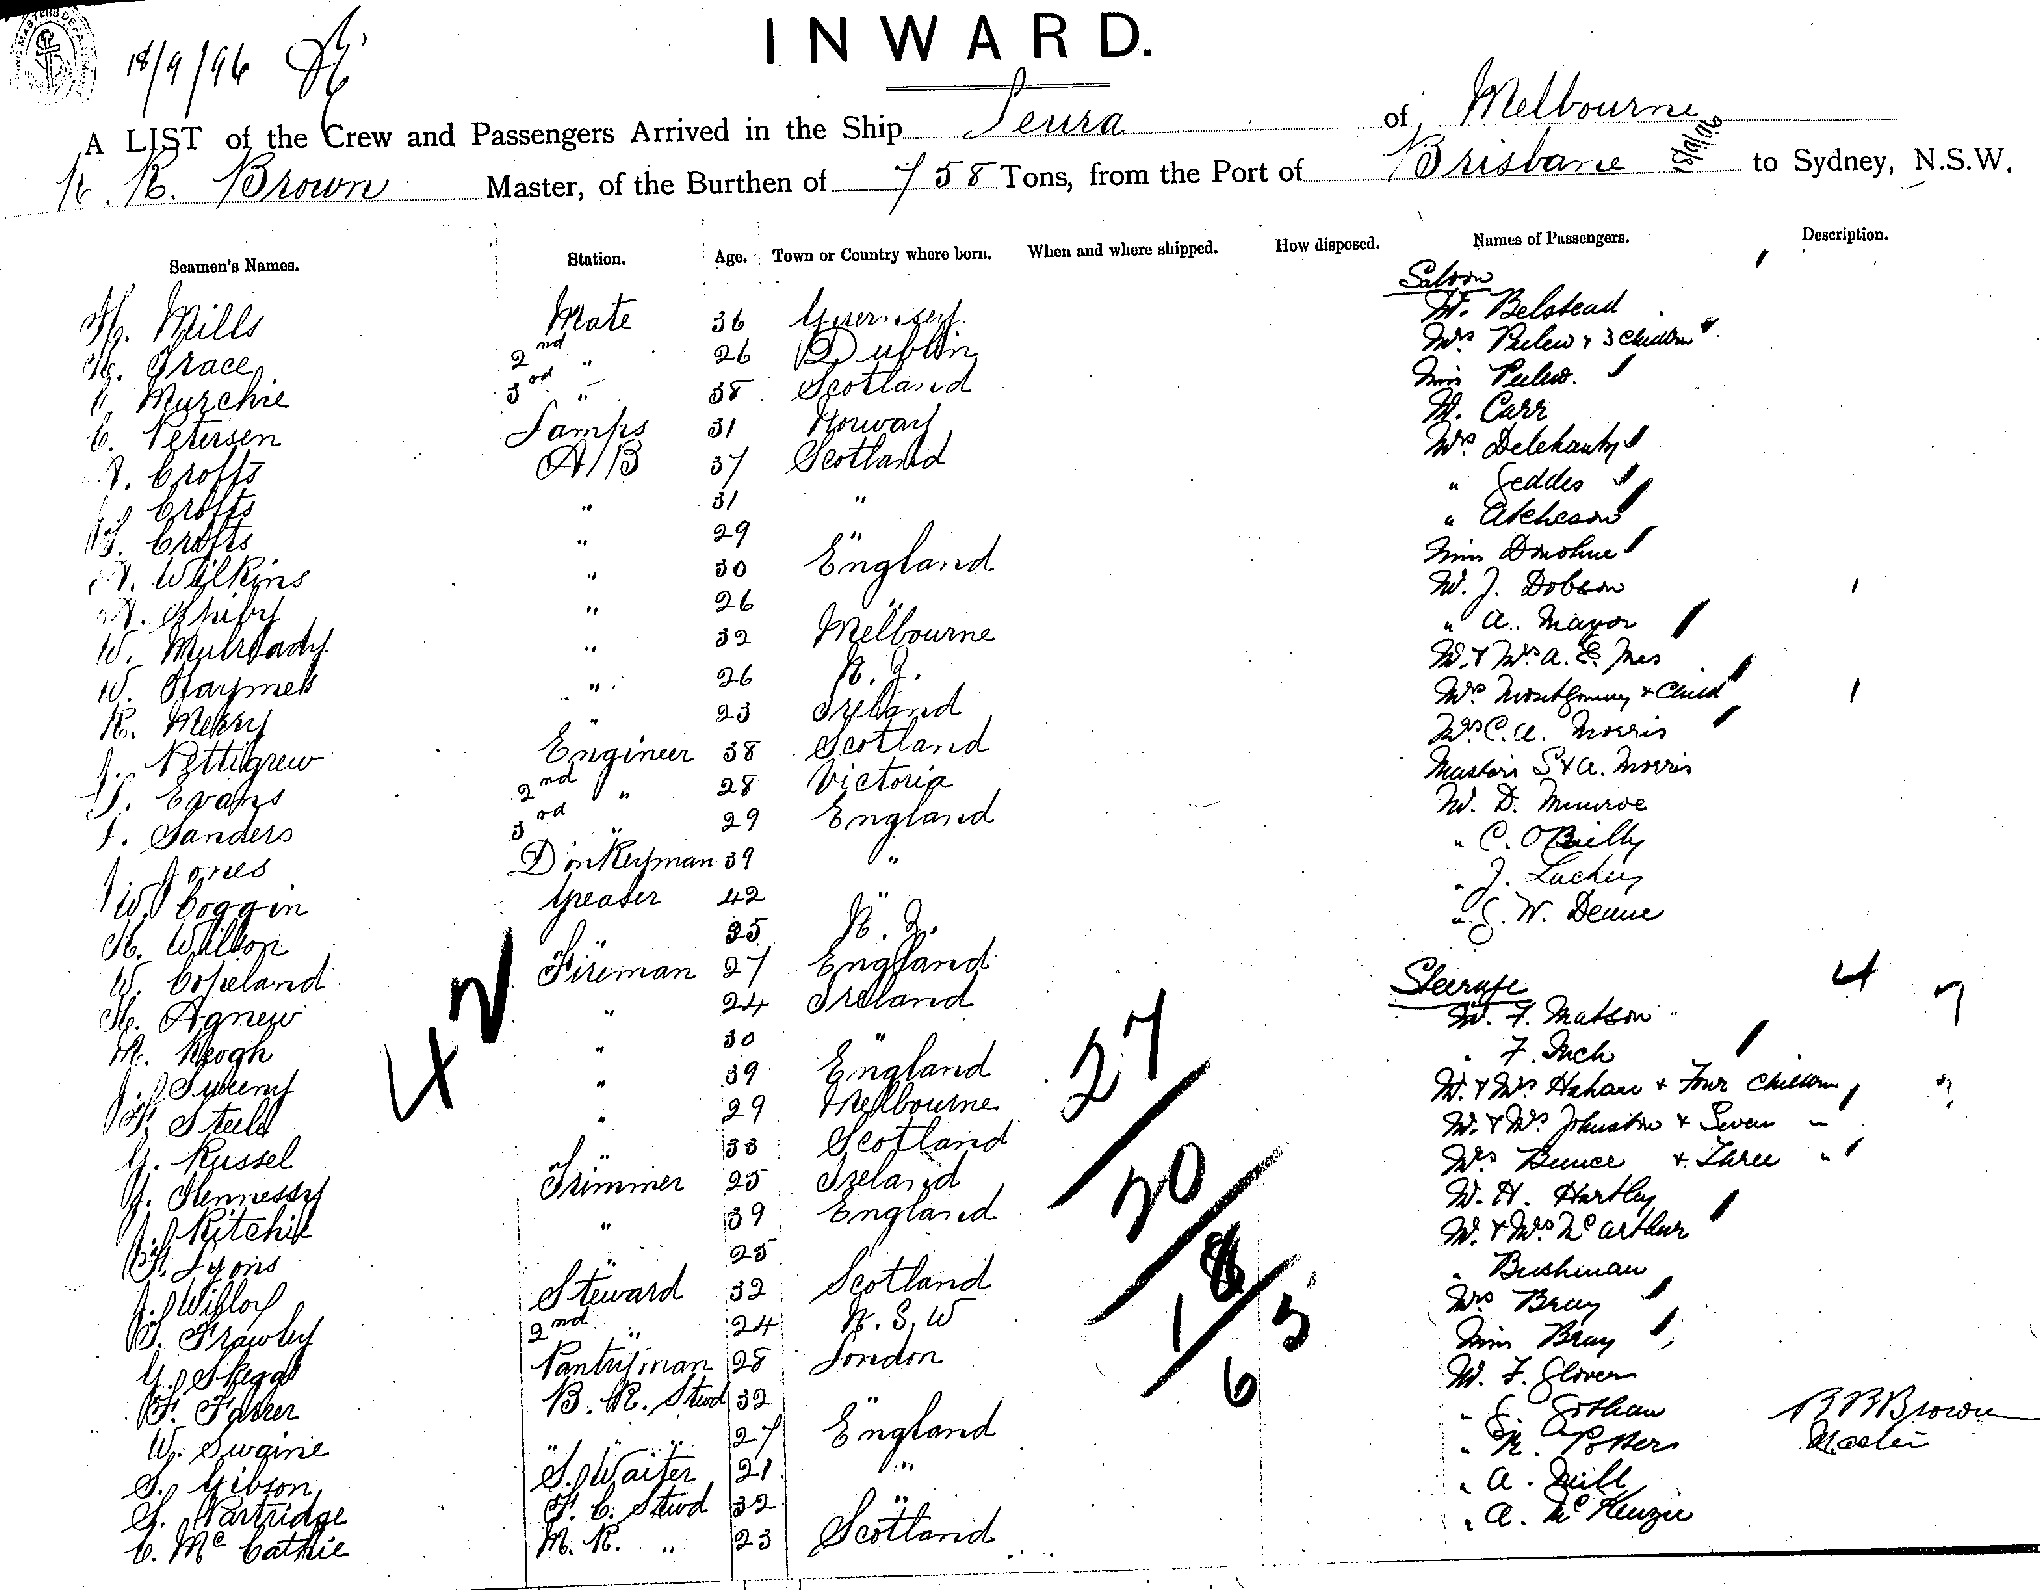 18/9/96
INWARD.
A LIST of the Crew and Passengers Arrived in the Ship Leura of Melbourne
R. Brown Master, of the Burthen of 758 Tons, from the Port of Brisbane to Sydney, N.S.W.
Seamen's Names. Station. Age. Town or Country where born. When and where shipped. How disposed. Names of Passengers. Description.
Saloon
Mills Mate 36 Guernsey Mr. Belstead
Grace 2nd " 26 Dublin Mrs & 3 Children
Murchie 3rd " 38 Scotland Miss
C. Petersen Lamps 31 Norway Mr. Carr
Crofts A/B 37 Scotland Mrs Delehanty
Crofts " 31 " " Geddes
Crofts " 29 " " Atcheson
Wilkins " 30 England Miss Donohue
" 26 " Mr. J. Dobson
W. Mulready " 32 Melbourne " A. Mayor
W. " 26 N.Z. Mr. & Mrs A. E.
R. Merry " 23 Ireland Mrs Montgomery & Child
J. Pettigrew Engineer 38 Scotland Mrs C. A. Morris
Evans 2nd " 28 Victoria Masters S & A. Morris
Sanders 3rd " 29 England Mr. D. Munroe
J. Jones Donkeyman 39 " " C. O'Reilly
W. Coggin Greaser 42 " " J.
Wilson " 35 N.Z. " W. Deane
W. Copeland Fireman 27 England
Steerage 4 7
Agnew " 24 Ireland Mr. F. Matson
M. Keogh " 30 " " F. Inch
J. Sweeny " 39 England Mr. & Mrs & Four Children
Steele " 29 Melbourne Mr. & Mrs Johnston & Seven "
Russel " 33 Scotland Mrs Bunce & Three "
J. Hennessy Trimmer 25 Ireland Mr. H. Hartley
J. Ritchie " 39 England Mr. & Mrs McArthur
Lyons " 25 " " Bushman
J. Steward 32 Scotland Mrs Bray
Frawley 2nd " 24 N.S.W Miss Bray
Skeggs Pantryman 28 London Mr. F. Glover
F. Farrer B. R. Stwd 32 "
W. Swaine " " " 27 England
Gibson S. Waiter 21 " " A.
Partridge F. C. Stwd 32 " " A. McKenzie
C. McCathie M. R. " 23 Scotland
42
27
20
18
6 5
Brown
Master